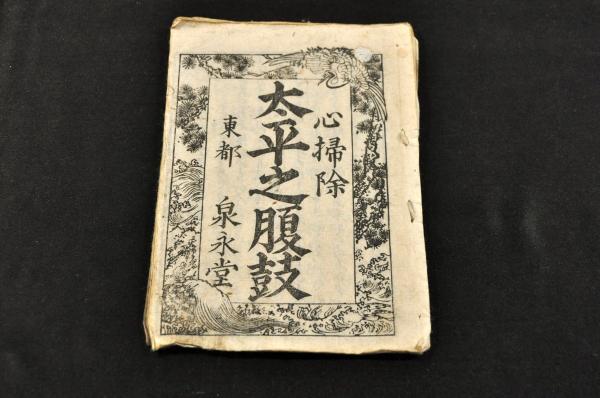 心掃除
太平之腹鼓
東都 泉永堂